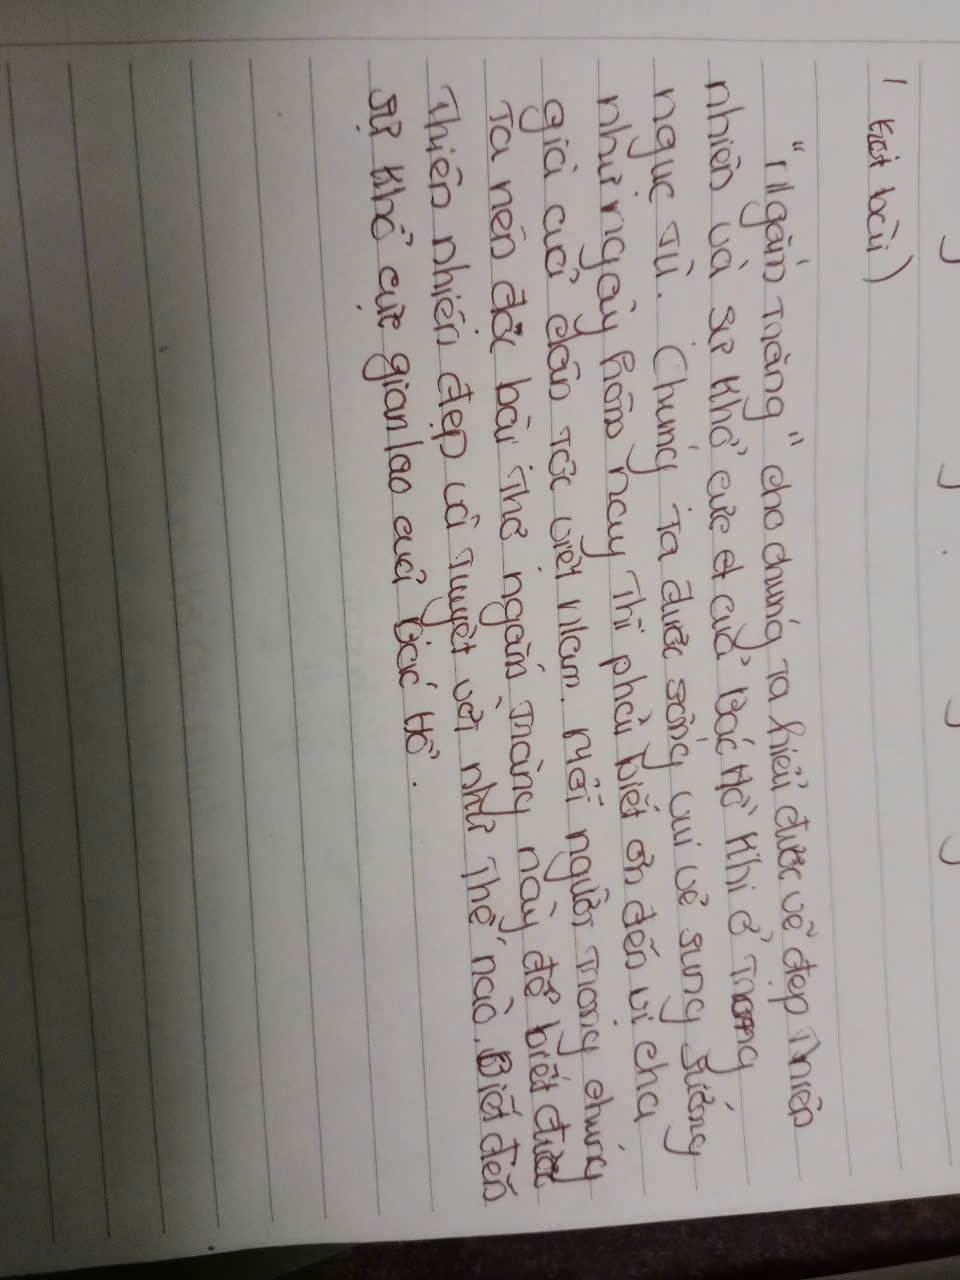 ( kết bài )
"Ngắm trăng" cho chúng ta hiểu được vẽ đẹp thiên
nhiên và sự khổ cực của Bác Hồ khi ở trong
ngục tù. Chúng ta được sống vui vẻ sung sướng
như ngày hôm nay thì phải biết ơn đến vị cha
già của dân tộc việt Nam. Mỗi người trong chúng
ta nên đọc bài thơ ngắm trăng này để biết được
thiên nhiên đẹp và tuyệt vời như thế nào. Biết đến
sự khổ cực gian lao của Bác Hồ.